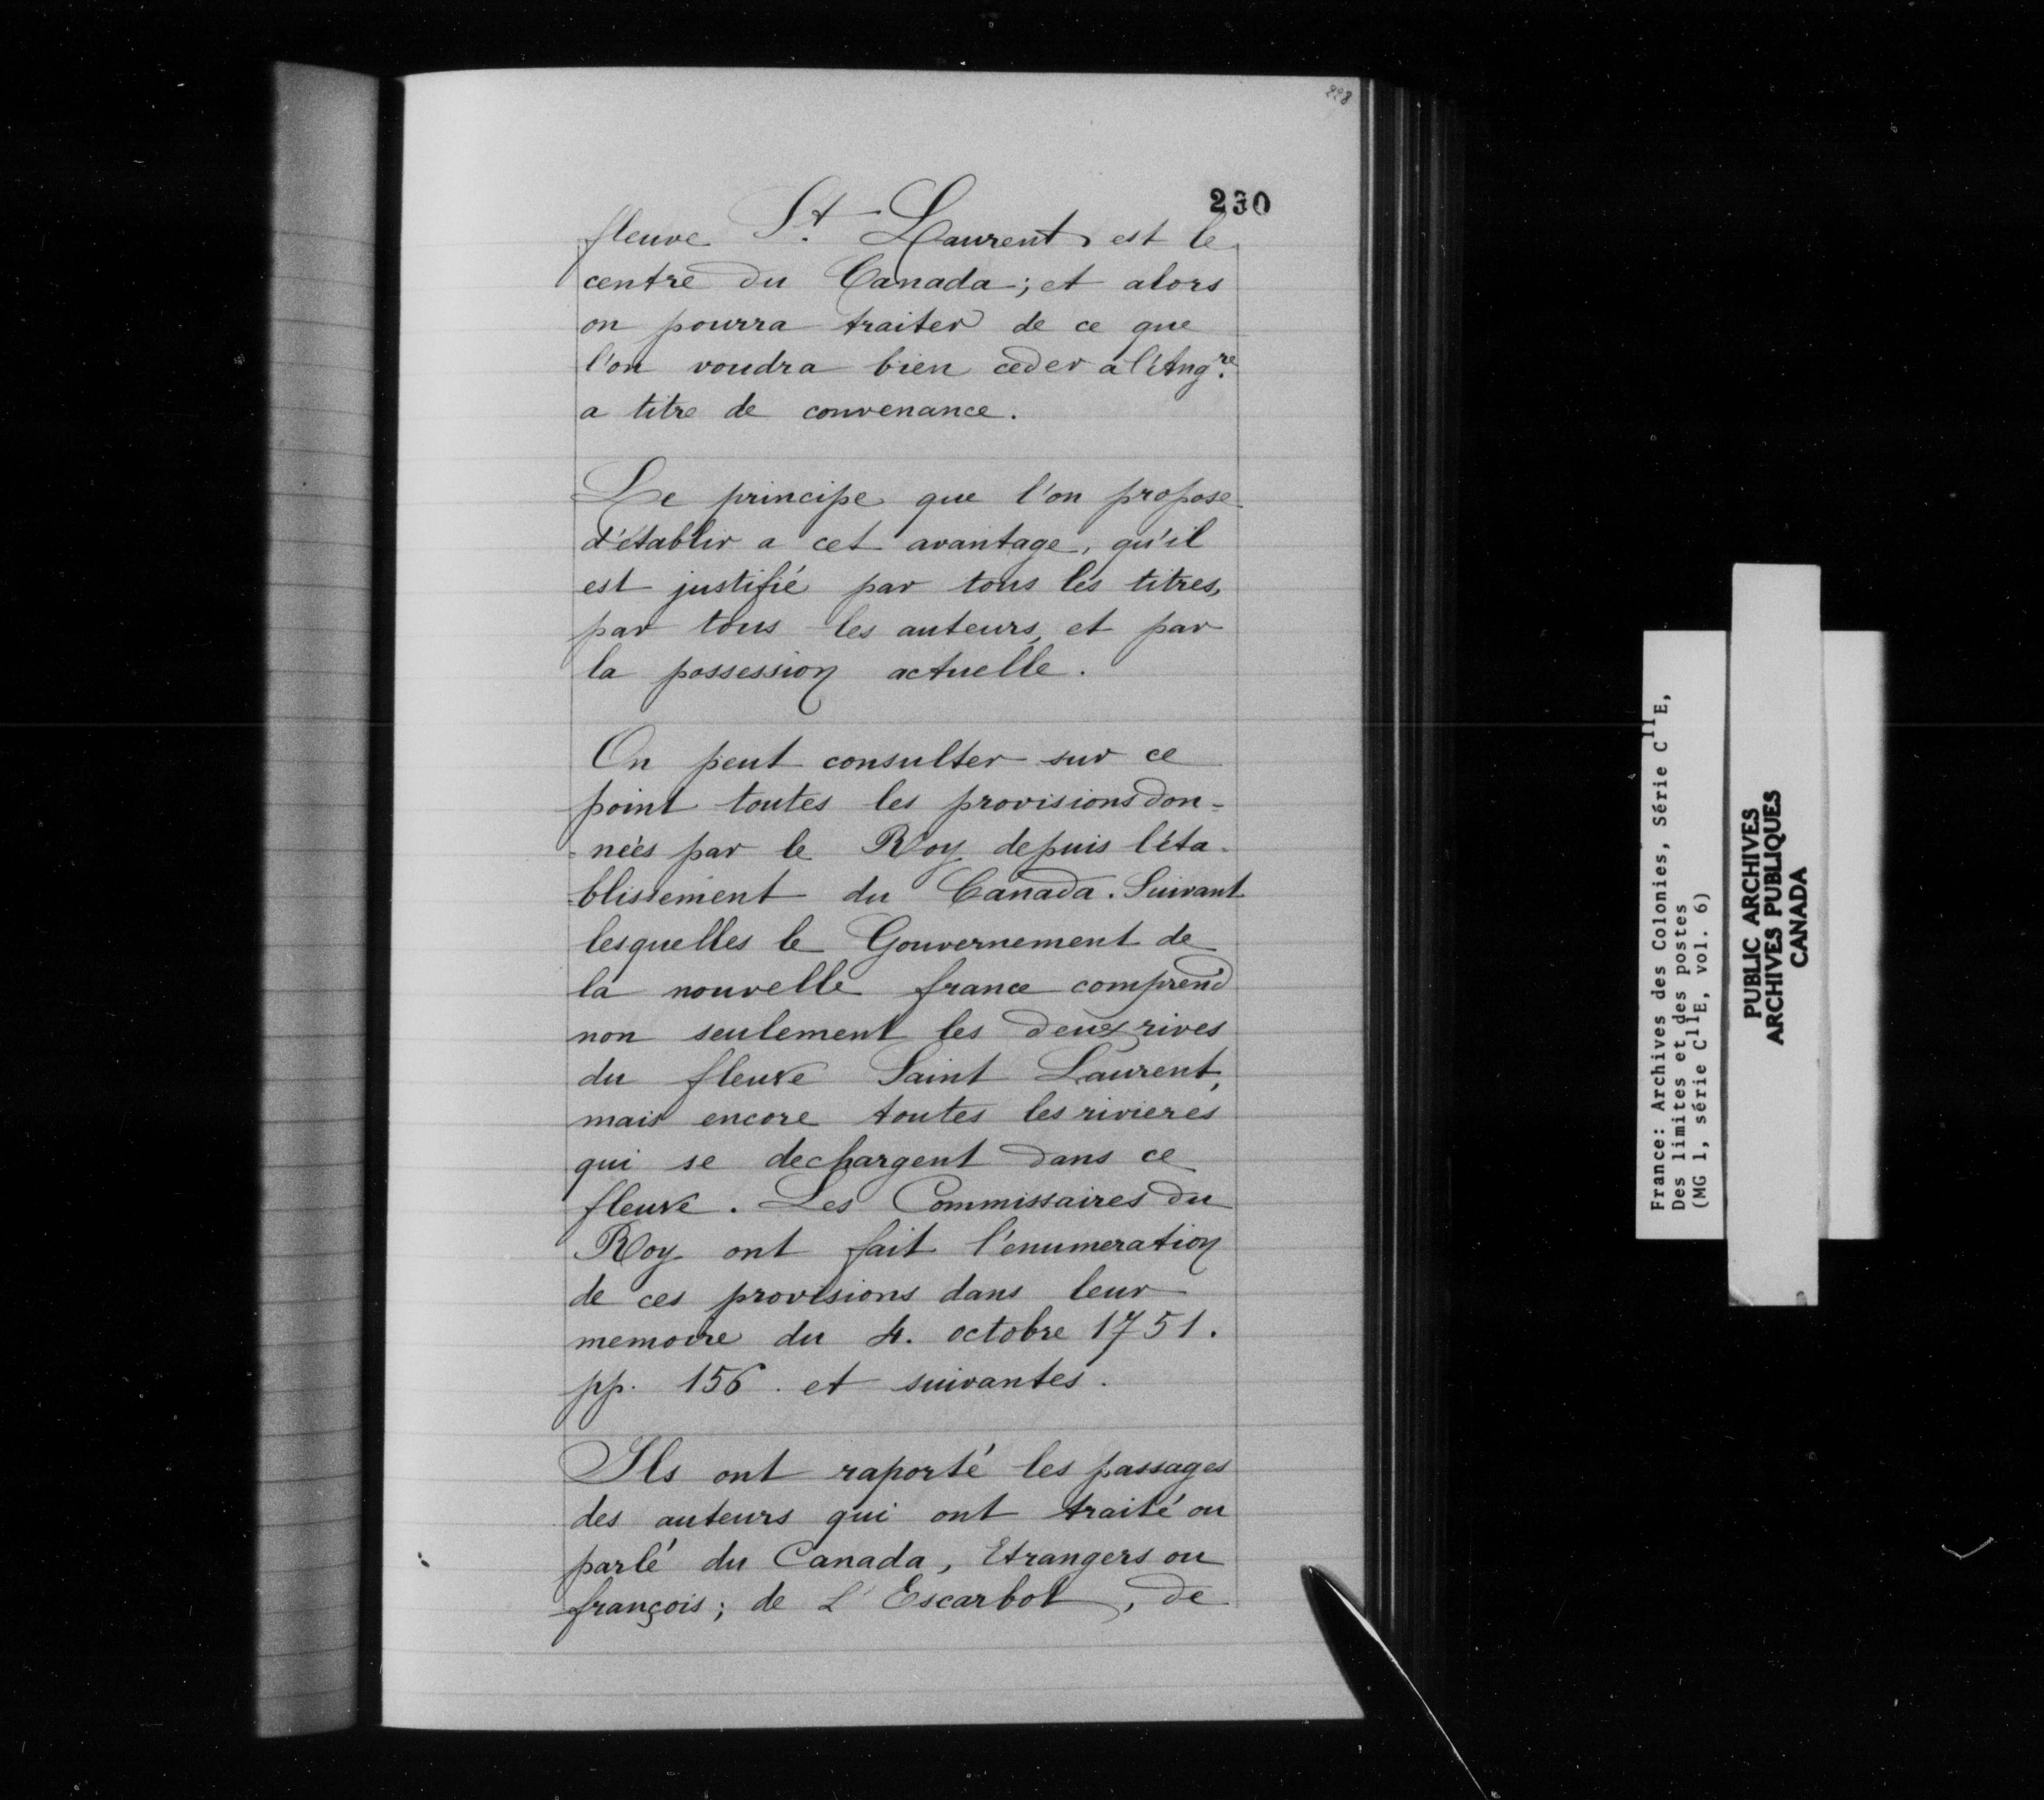 230
fleuve St. Laurent est le
centre du Canada; et alors
on pourra traiter de ce que
l'on voudra bien ceder a l'Angre.
a titre de convenance.
Le principe que l'on propose
d'établir a cet avantage, qu'il
est justifié par tous les titres,
par tous les auteurs, et par
la possession actuelle.
On peut consulter sur ce
point toutes les provisions don-
-nées par le Roy depuis l'éta-
-blissement du Canada. Suivant
lesquelles le Gouvernement de
la nouvelle france comprend
non seulement les deux rives
du fleuve Saint Laurent,
mais encore toutes les rivieres
qui se dechargent dans ce
fleuve. Les Commissaires du
Roy ont fait l'enumeration
de ces provisions dans leur
memoire du 4. octobre 1751.
pp. 156. et suivantes.
Ils ont raporté les passages
des auteurs qui ont traité ou
parlé du Canada, Etrangers ou
françois; de L'Escarbot, de
France: Archives des Colonies, Série C11E,
Des limites et des postes
(MG 1, série C11E, vol. 6)
PUBLIC ARCHIVES
ARCHIVES PUBLIQUES
CANADA